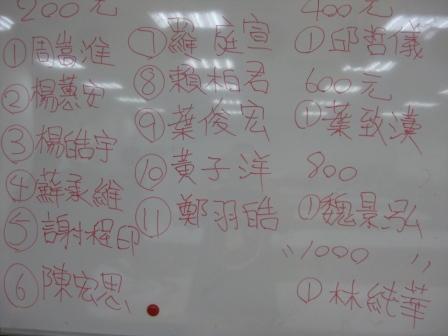 200元
①周嵩淮
②楊蕙安
③楊皓宇
④蘇柔維
⑤謝程印
⑥陳宏思
⑦羅庭宣
⑧賴柏君
⑨葉俊宏
⑩黃子洋
⑪鄭羽皓
400元
①邱哲儀
600元
①葉致漢
800
①魏景泓
"1000"
①林純華